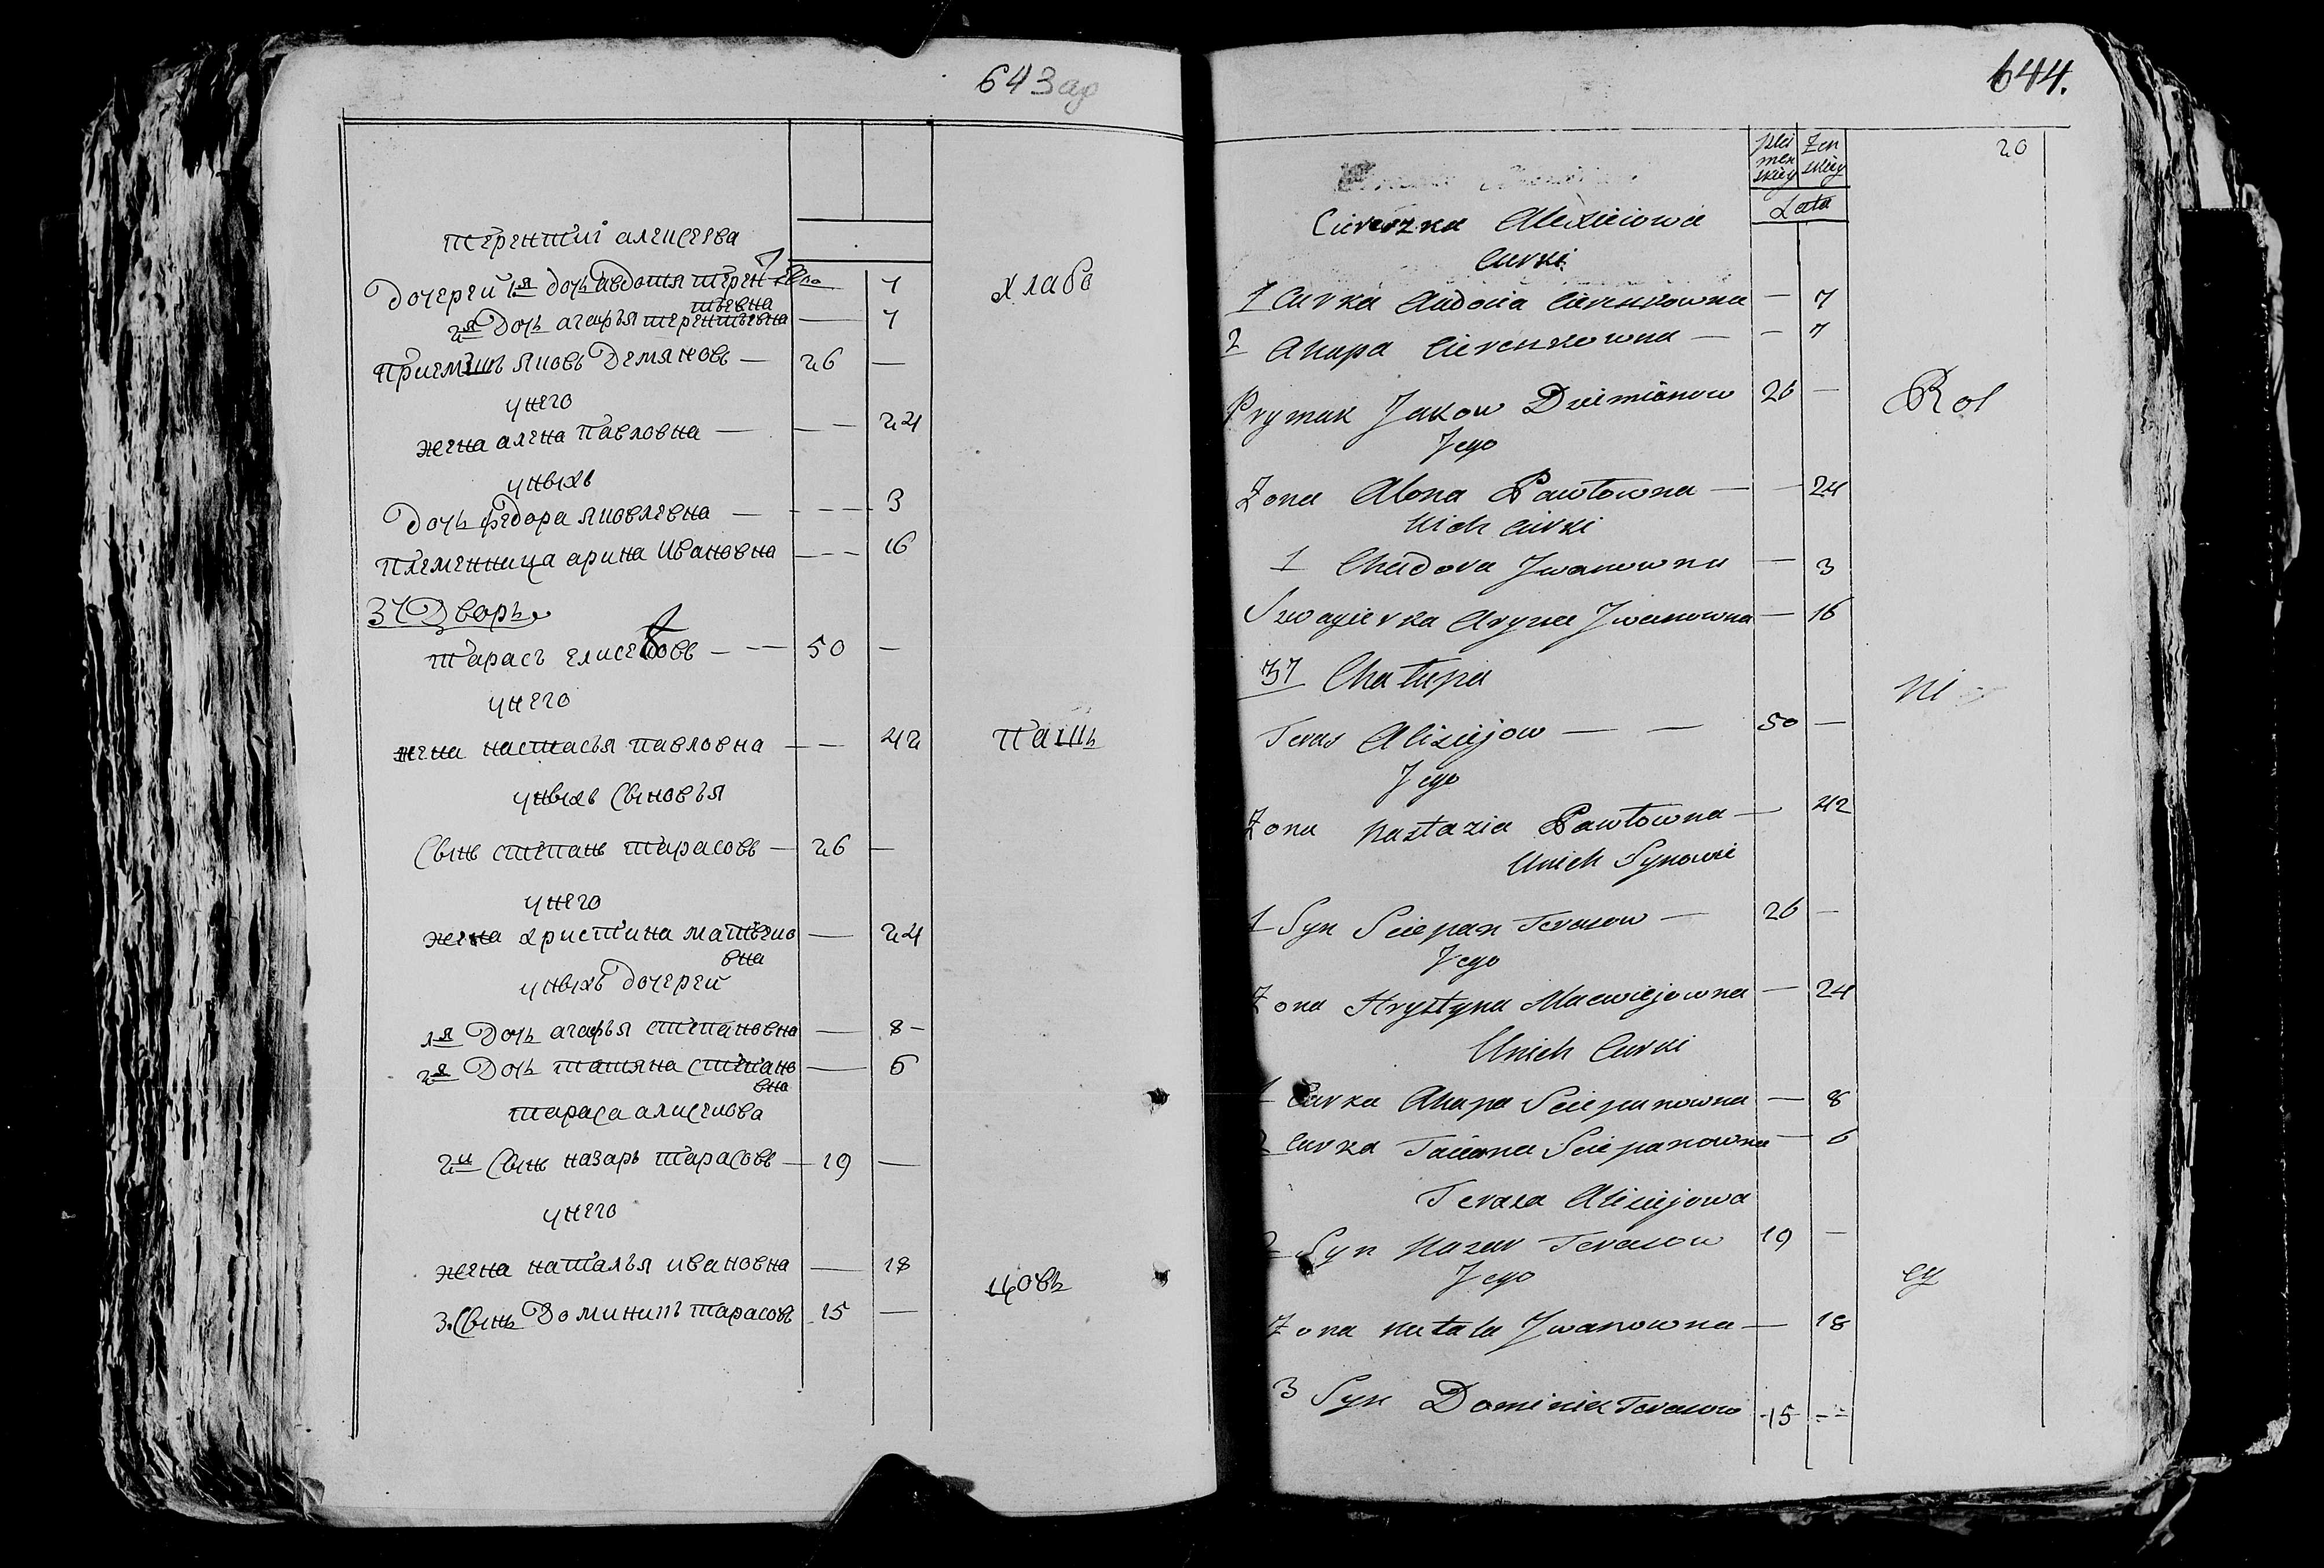 643 ар
терентиі алеисеева
дочерей 1я дочь авдотья терен
тьевна
— 7
хлабо
2я дочь агафья терентьевна — 7
приемышъ яковъ Демяновъ — 26 —
унего
жена алена павловна — — — 24
унихъ
дочь федора яковлевна — — — — 3
племенница арина Ивановна — — — 16
37 Дворъ
тарасъ елисеевовъ — — — 50 —
унего
жена настасья павловна — — 42
пашь
унихъ сыновья
сынъ степанъ тарасовъ — 26 —
унего
жена христина матвеио
вна
— 24
унихъ дочерей
1я Дочь агафья степановна — 8 —
2я Дочь татьяна степано
вна
— 6
тараса алисеиова
2й сынъ назаръ тарасовъ — 19 —
унего
жена наталья ивановна — 18
цовъ
3. сынъ Доминикъ тарасовъ 15 —
644.
20
płci
męz
skiey
Zen
skiey
Lata
Curki
1 Curka Audocia Cierenkowna — 7
2 Ahapa Cierenkowna — — 7
Prymak Jakow Dziemianow 26 —
Rol
Jego
Zona Alona Pawłowna — — 24
Unich Curki
1 Chadora Jwanowna — 3
Szwagierka Aryna Jwanowna — 16
37 Chałupa
ni
Teras Alisiejow — — 50 —
Jego
Zona Nastazia Pawłowna — 42
Unich Synowie
1 Syn Sciepan Terasow — 26 —
Jego
Zona Krystyna Maciejowna — 24
Unich Curki
1 Curka Ahapa Sciepanowna — 8
2 Curka Taciana Sciepanowna — 6
Terasa Alisiejowa
2 Syn Nazar Terasow 19 —
Jego
cy
Zona Natala Jwanowna — 18
3 Syn Dominik Terasow 15 — —